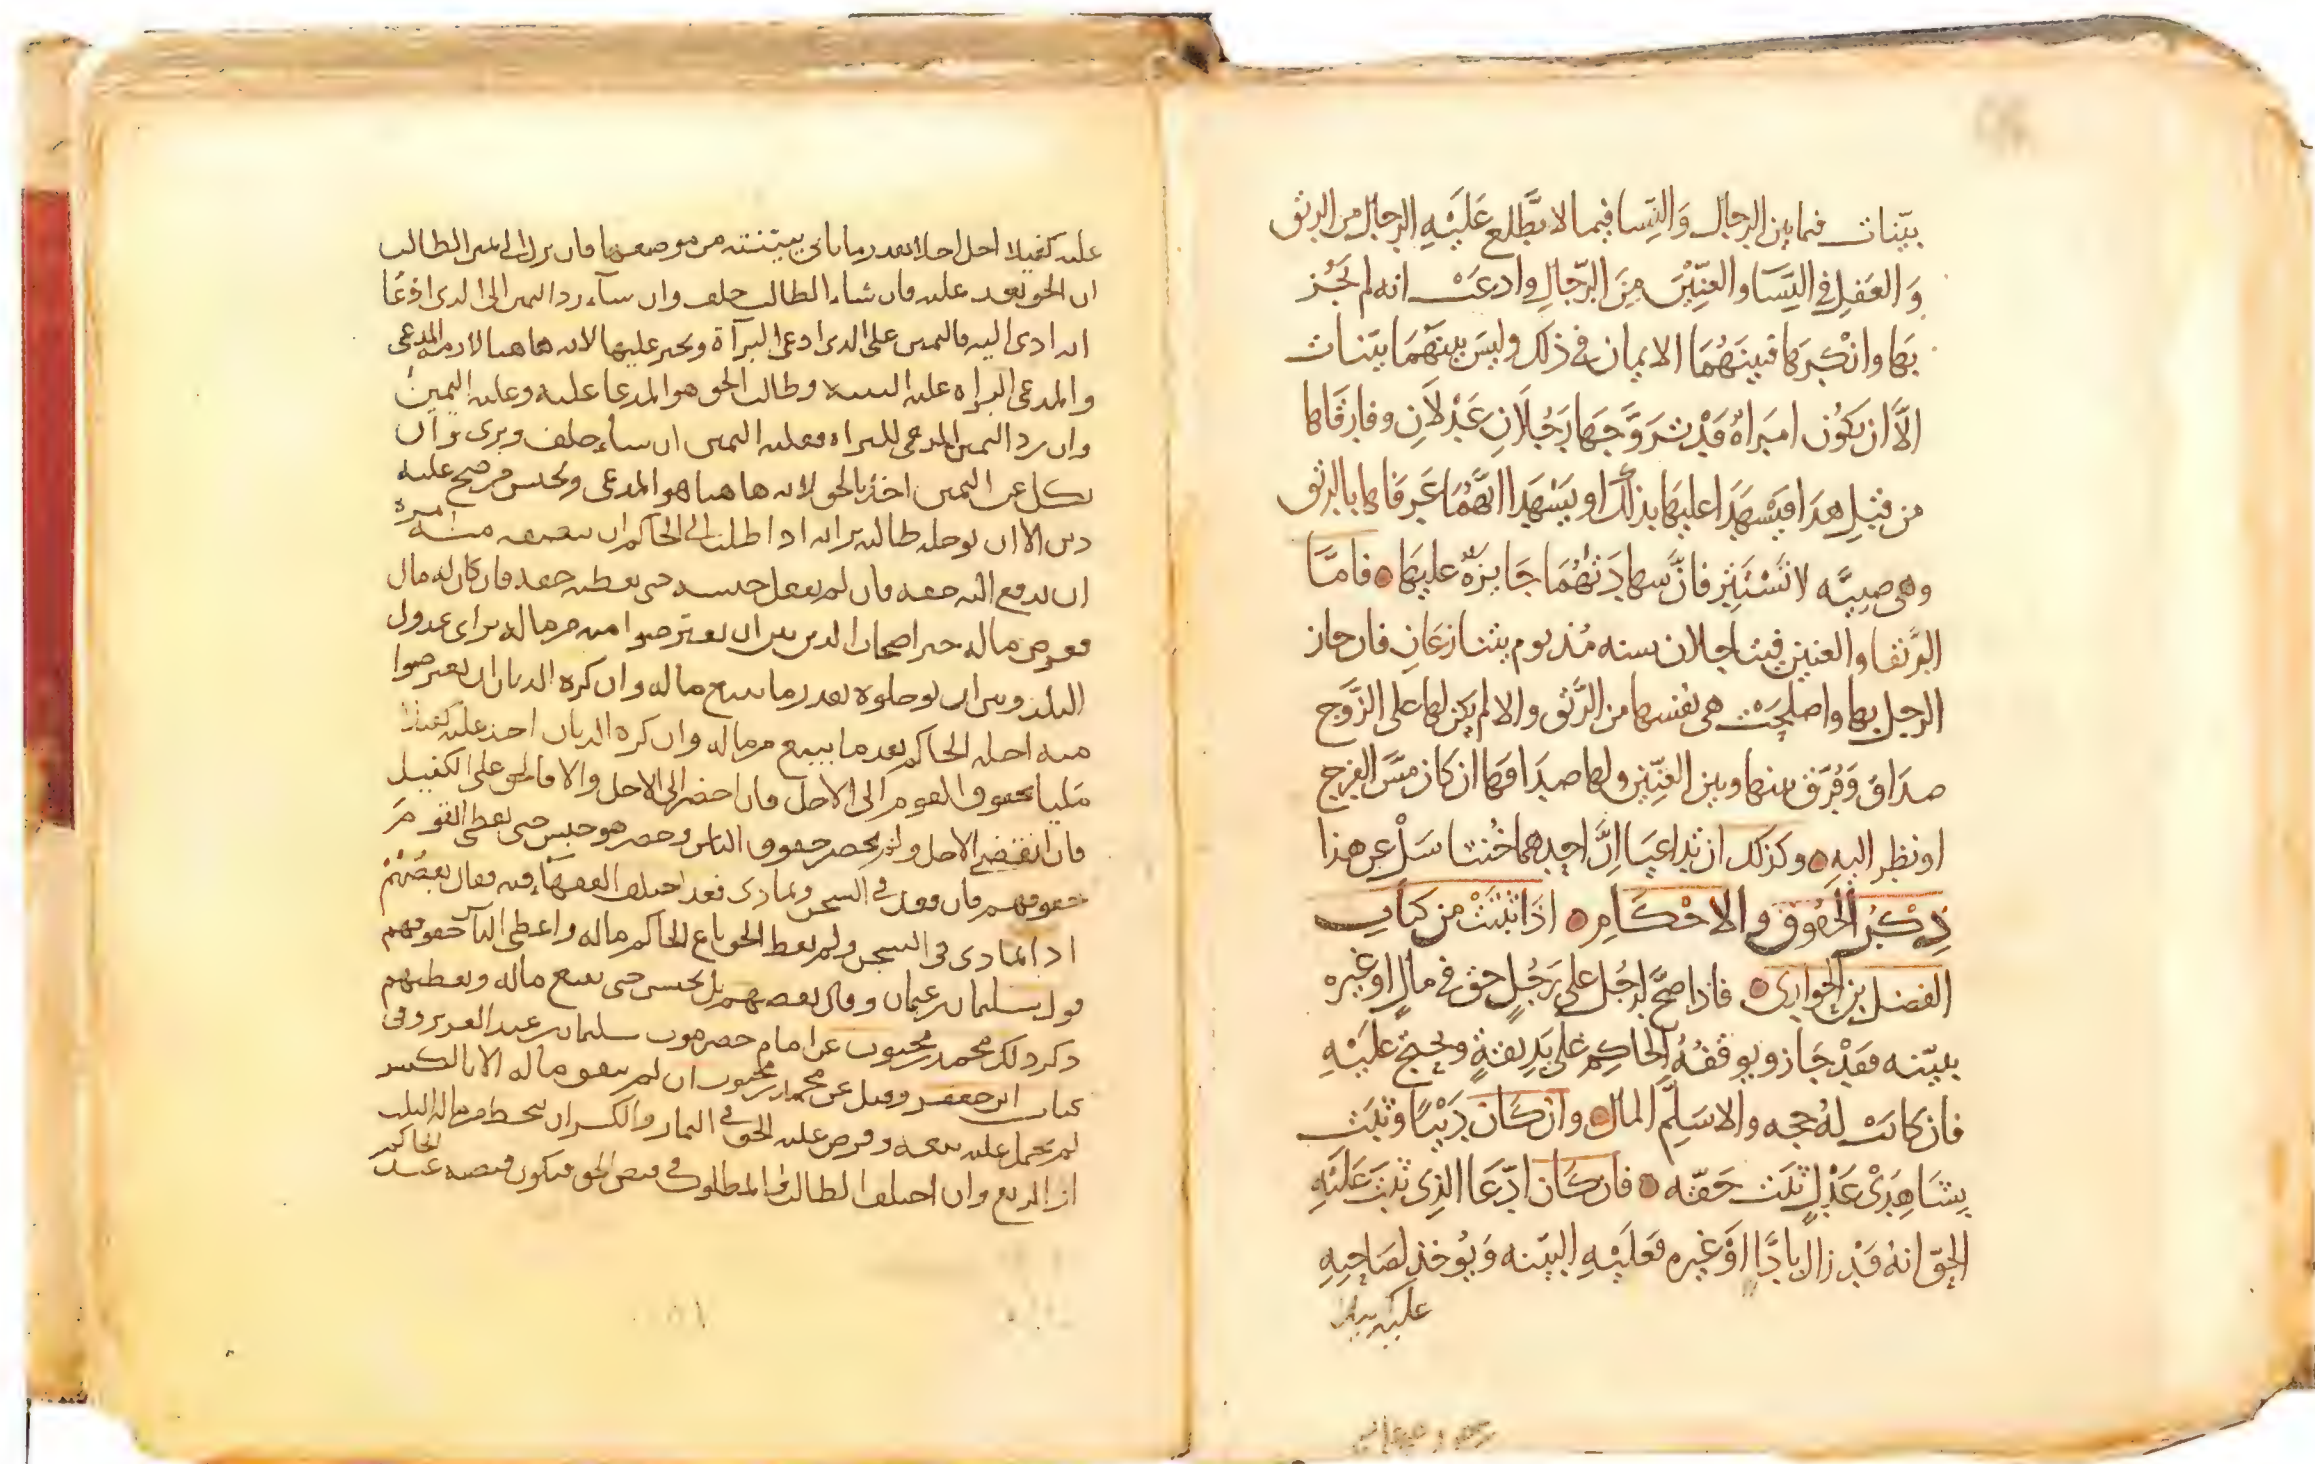 بينات فيما بين الرجال والنسا فيما لا يطلع عليه الرجال من الرتق
والعفل في النسا والعنين من الرجال وادعت انه لم يجز
بها وانكرها فبينهما الايمان في ذلك وليس بينهما بينات
الا ان تكون امراة قد تزوجها رجلان عدلان وفارقاها
من قبل هذا فيشهدا عليها بذلك او يشهدا انهما عرفاها بالرتق
وهي صبيه لا تستتر فان شهادتهما جايزة عليها فاما
الرتقا والعنين فيتاجلان سنه مذ يوم يتنازعان فان جاز
الرجل بها واصلحت هي نفسها من الرتق والا لم يكن لها على الزوج
صداق وفرق بينها وبين العنين ولها صداقها ان كان مس الفرج
او نظر اليه وكذلك ان تداعيا ان احدهما خنثا سل عن هذا
ذكر الحقوق والاحكام اذا ثبتت من كتاب
الفضل بن الحواري فاذا صح لرجل على رجل حق في مال او غيره
ببينه فقد جاز ويوقفه الحاكم على يد ثقة ويحتج عليه
فان كانت له حجه والا سلم المال وان كان دينا وثبت
بشاهدي عدل ثبت حقه فان كان ادعا الذي ثبت عليه
الحق انه قد زال بادا او غيره فعليه البينه ويوخذ لصاحبه
عليه
عليه كفيلا اجل اجلا بعد ما ياتي ببينته من موضعها فان نزل الى يمين الطالب
ان الحق بعد عليه فان شاء الطالب حلف وان شاء رد اليمين الى الذي ادعا
انه ادى اليه فاليمين على الذي ادعى البرآة ويجبر عليها لانه هاهنا المدعى
والمدعي البراه عليه البينه وطالب الحق هو المدعا عليه وعليه اليمين
وان رد اليمين المدعي للبراه فعليه اليمين ان شاء حلف وبرى وان
نكل عن اليمين اخذ بالحق لانه هاهنا هو المدعى ويحبس من صح عليه
دين الا ان يوجله طالبه اذا طلب الى الحاكم ان ينصفه منه امره
ان يدفع اليه حقه فان لم يفعل حبسه حتى يعطيه حقه فان كان له مال
فعرض ماله خير اصحاب الدين بين ان يعترضوا منه من ماله براى عدول
البلد وبين ان يوجلوه بعد ما يبيع ماله وان كره الديان ان يعترضوا
منه اجله الحاكم بعد ما يبيع من ماله وان كره الديان اخذ عليه كفيلا
مليا بحقوق القوم الى الاجل فان احضر الى الاجل والا فالحق على الكفيل
فان انقضى الاجل ولم يحضر حقوق الناس وحضر هو حبس حتى يعطي القوم
حقوقهم فان قعد في السجن وتمادى فقد اختلف الفقهاء فيه فقال بعضهم
اذا تمادى في السجن ولم يعط الحق باع الحاكم ماله واعطى الناس حقوقهم
قول سليمان بن عثمان وقال بعضهم بل يحبس حتى يبيع ماله ويعطيهم
ذكر ذلك محمد بن محبوب عن امام حضرموت سليمان بن عبد العزيز وفي
كتاب ابن جعفر وقيل عن محمد بن محبوب ان لم ينفق ماله الا بالكسر
لم يحمل عليه بيعه وفرض عليه الحق في الثمار والكسر ان ينحط من ماله الثلث
او الربع وان اختلف الطالب والمطلوب في قبض الحق فيكون قبضه عند الحاكم